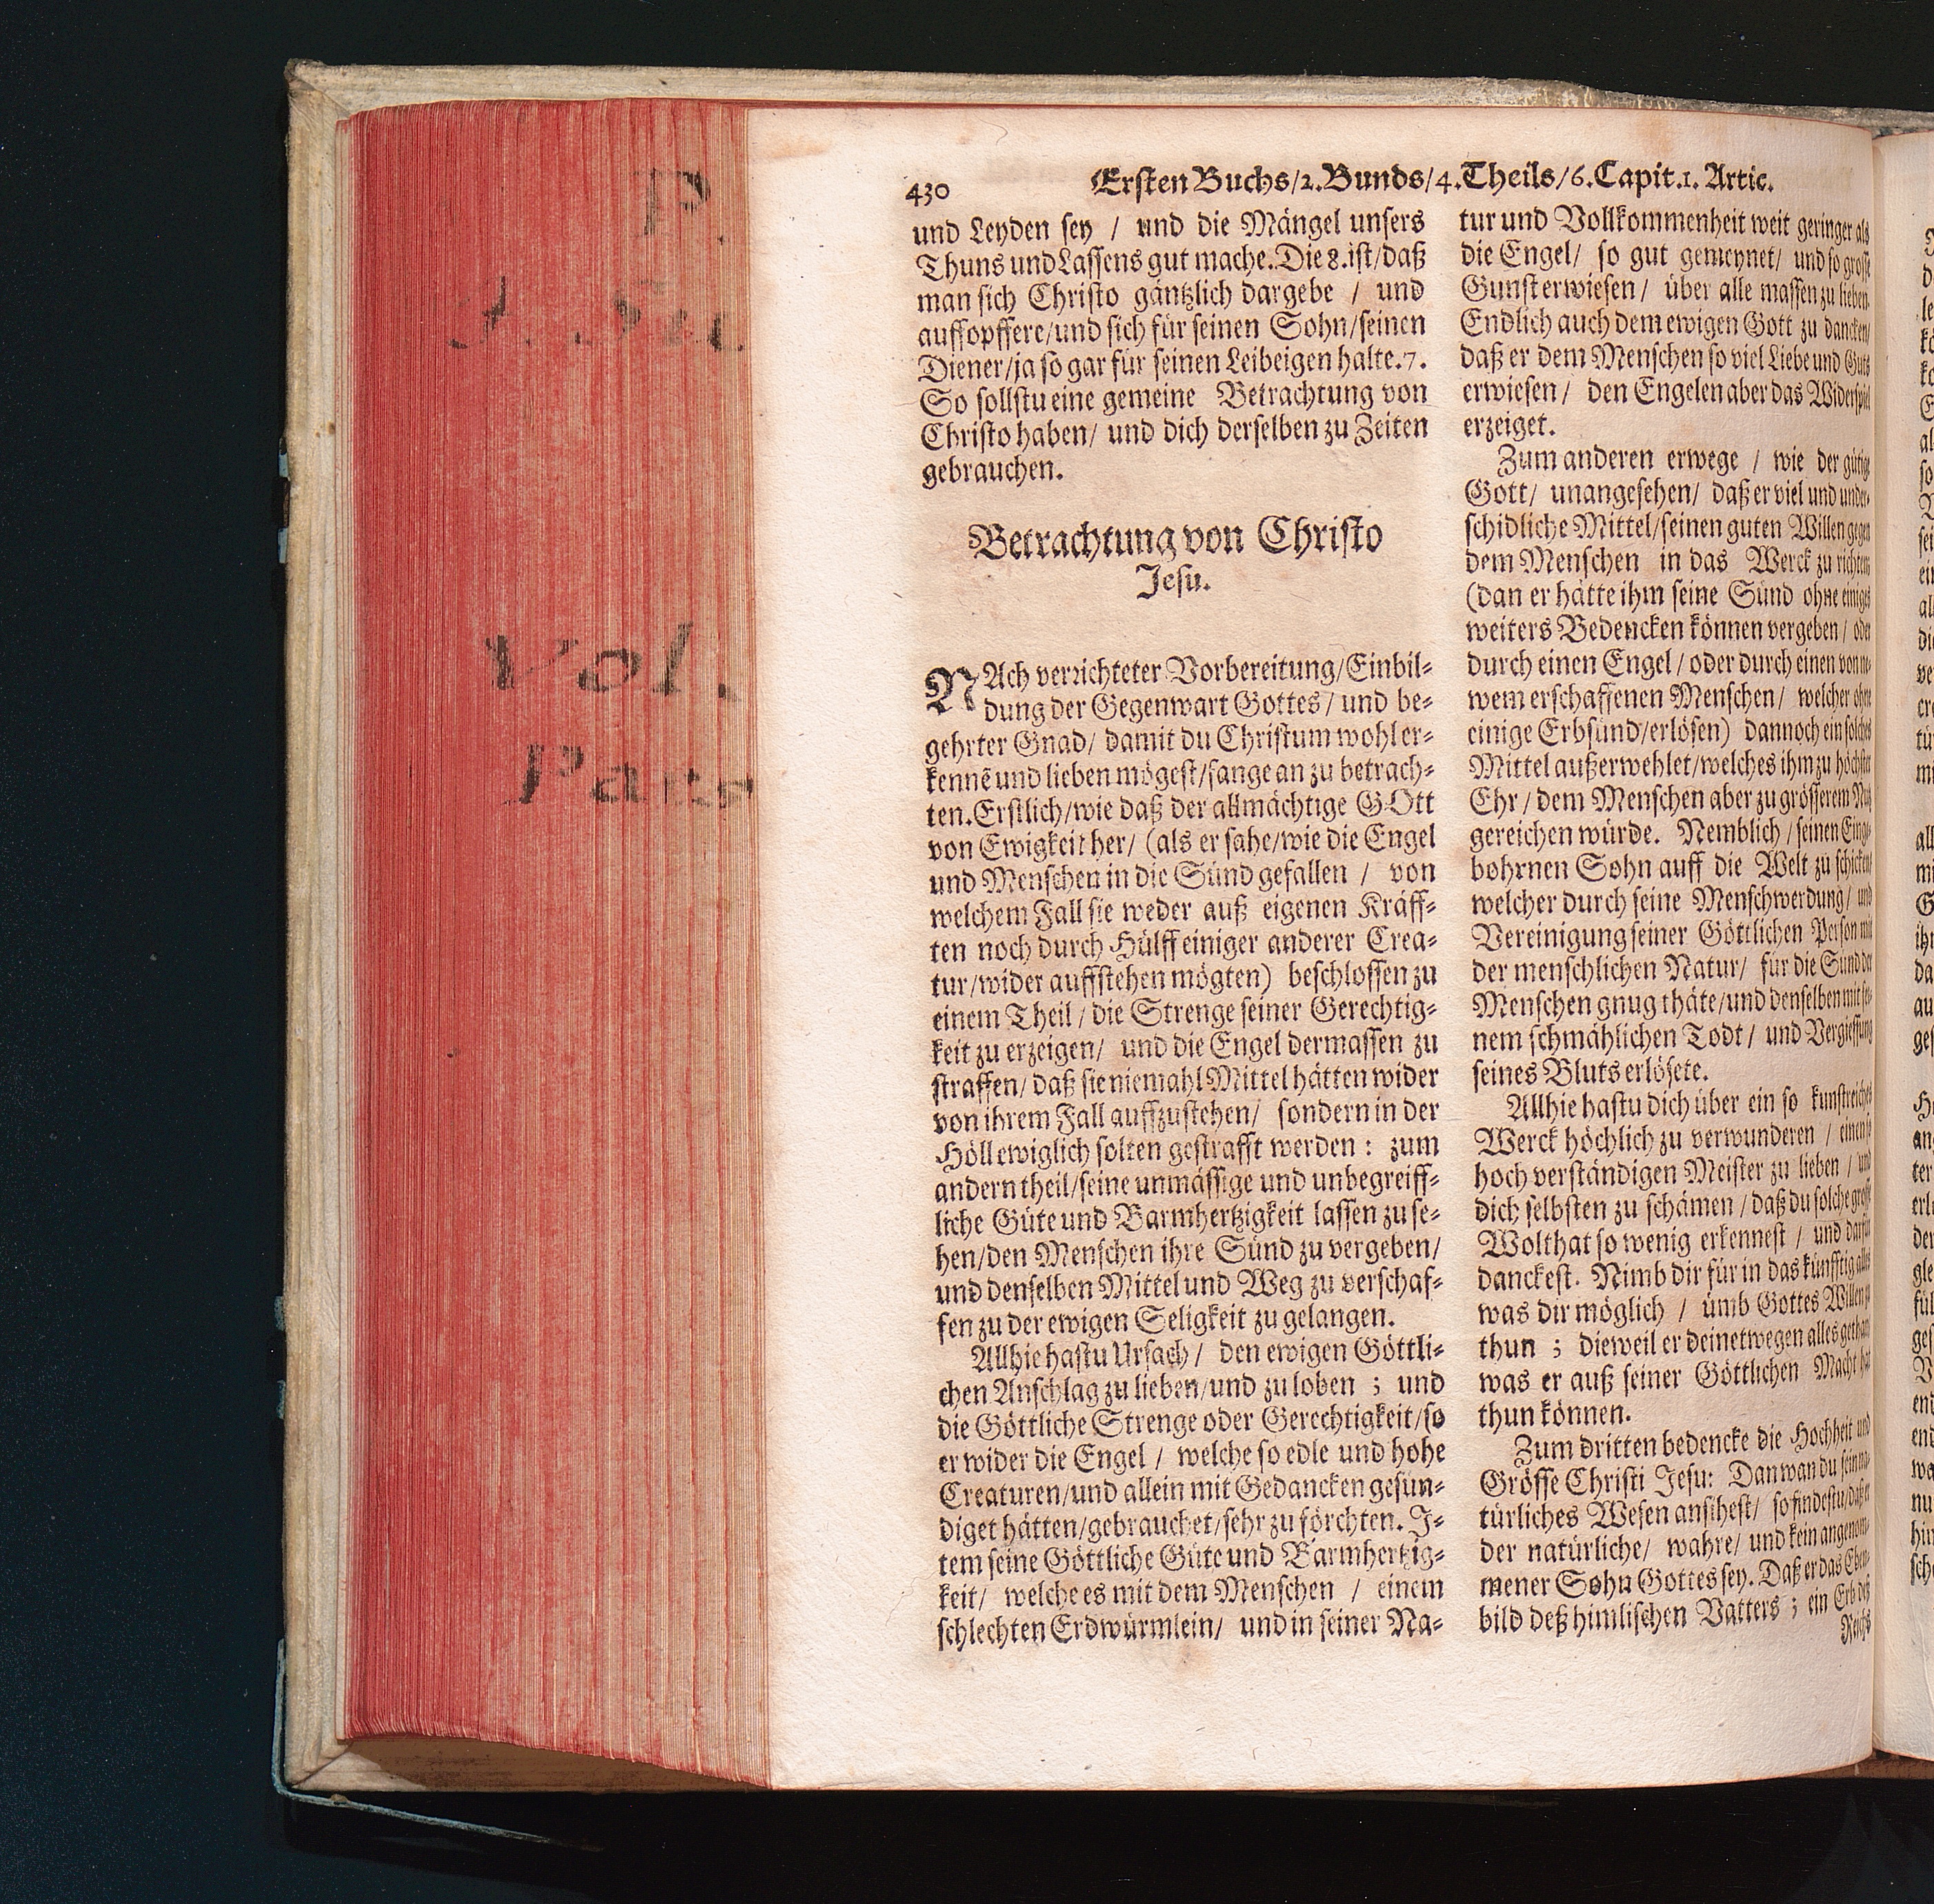 430
Ersten Buchs/2. Bunds/4. Theils/6. Capit. 1. Artic.
und Leyden sey / und die Mängel unsers
Thuns und Lassens gut mache. Die 8. ist/daß
man sich Christo gäntzlich dargebe / und
auffopffere/und sich für seinen Sohn/seinen
Diener/ja so gar für seinen Leibeigen halte. 7.
So sollstu eine gemeine Betrachtung von
Christo haben/ und dich derselben zu Zeiten
gebrauchen.
Betrachtung von Christo
Jesu.
NAch verrichteter Vorbereitung/Einbil-
dung der Gegenwart Gottes/ und be-
gehrter Gnad/ damit du Christum wohl er-
kennẽ und lieben mögest/fange an zu betrach-
ten. Erstlich/wie daß der allmächtige GOtt
von Ewigkeit her/ (als er sahe/wie die Engel
und Menschen in die Sünd gefallen / von
welchem Fall sie weder auß eigenen Kräff-
ten noch durch Hülff einiger anderer Crea-
tur/wider auffstehen mögten) beschlossen zu
einem Theil/ die Strenge seiner Gerechtig-
keit zu erzeigen/ und die Engel dermassen zu
straffen/ daß sie niemahl Mittel hätten wider
von ihrem Fall auffzustehen/ sondern in der
Höll ewiglich solten gestrafft werden: zum
andern theil/seine unmässige und unbegreiff-
liche Güte und Barmhertzigkeit lassen zu se-
hen/den Menschen ihre Sünd zu vergeben/
und denselben Mittel und Weg zu verschaf-
fen zu der ewigen Seligkeit zu gelangen.
Allhie hastu Ursach/ den ewigen Göttli-
chen Anschlag zu lieben/und zu loben ; und
die Göttliche Strenge oder Gerechtigkeit/so
er wider die Engel / welche so edle und hohe
Creaturen/und allein mit Gedancken gesün-
diget hätten/gebrauchet/sehr zu förchten. J-
tem seine Göttliche Güte und Barmhertzig-
keit/ welche es mit dem Menschen / einem
schlechten Erdwürmlein/ und in seiner Na-
tur und Vollkommenheit weit geringer als
die Engel/ so gut gemeynet/ und so grosse
Gunst erwiesen/ über alle massen zu lieben.
Endlich auch dem ewigen Gott zu dancken/
daß er dem Menschen so viel Liebe und Guts
erwiesen/ den Engelen aber das Widerspiel
erzeiget.
Zum anderen erwege / wie der gütige
Gott/ unangesehen/ daß er viel und under-
schidliche Mittel/seinen guten Willen gegen
dem Menschen in das Werck zu richten
(dan er hätte ihm seine Sünd ohne einiges
weiters Bedencken können vergeben/ oder
durch einen Engel/ oder durch einen von ne-
wem erschaffenen Menschen/ welcher ohne
einige Erbsünd/erlösen) dannoch ein solches
Mittel außerwehlet/welches ihm zu höchster
Ehr/ dem Menschen aber zu grösserem Nutz
gereichen würde. Nemblich/ seinen Einge-
bohrnen Sohn auff die Welt zu schicken/
welcher durch seine Menschwerdung/ und
Vereinigung seiner Göttlichen Person mit
der menschlichen Natur/ für die Sünd der
Menschen gnug thäte/und denselben mit sei-
nem schmählichen Todt/ und Vergiessung
seines Bluts erlösete.
Allhie hastu dich über ein so kunstreiches
Werck höchlich zu verwunderen / einen so
hoch verständigen Meister zu lieben / und
dich selbsten zu schämen / daß du solche grosse
Wolthat so wenig erkennest / und darfür
danckest. Nimb dir für in das künfftig alles
was dir möglich / ümb Gottes Willen zu
thun ; dieweil er deinetwegen alles gethan
was er auß seiner Göttlichen Macht hat
thun können.
Zum dritten bedencke die Hochheit und
Grösse Christi Jesu: Dan wan du sein na-
türliches Wesen ansihest/ so findestu/daß er
der natürliche/ wahre/ und kein angenom-
mener Sohn Gottes sey. Daß er das Eben-
bild deß himlischen Vatters ; ein Erb deß
Reichs
P.
Vol.
Pars